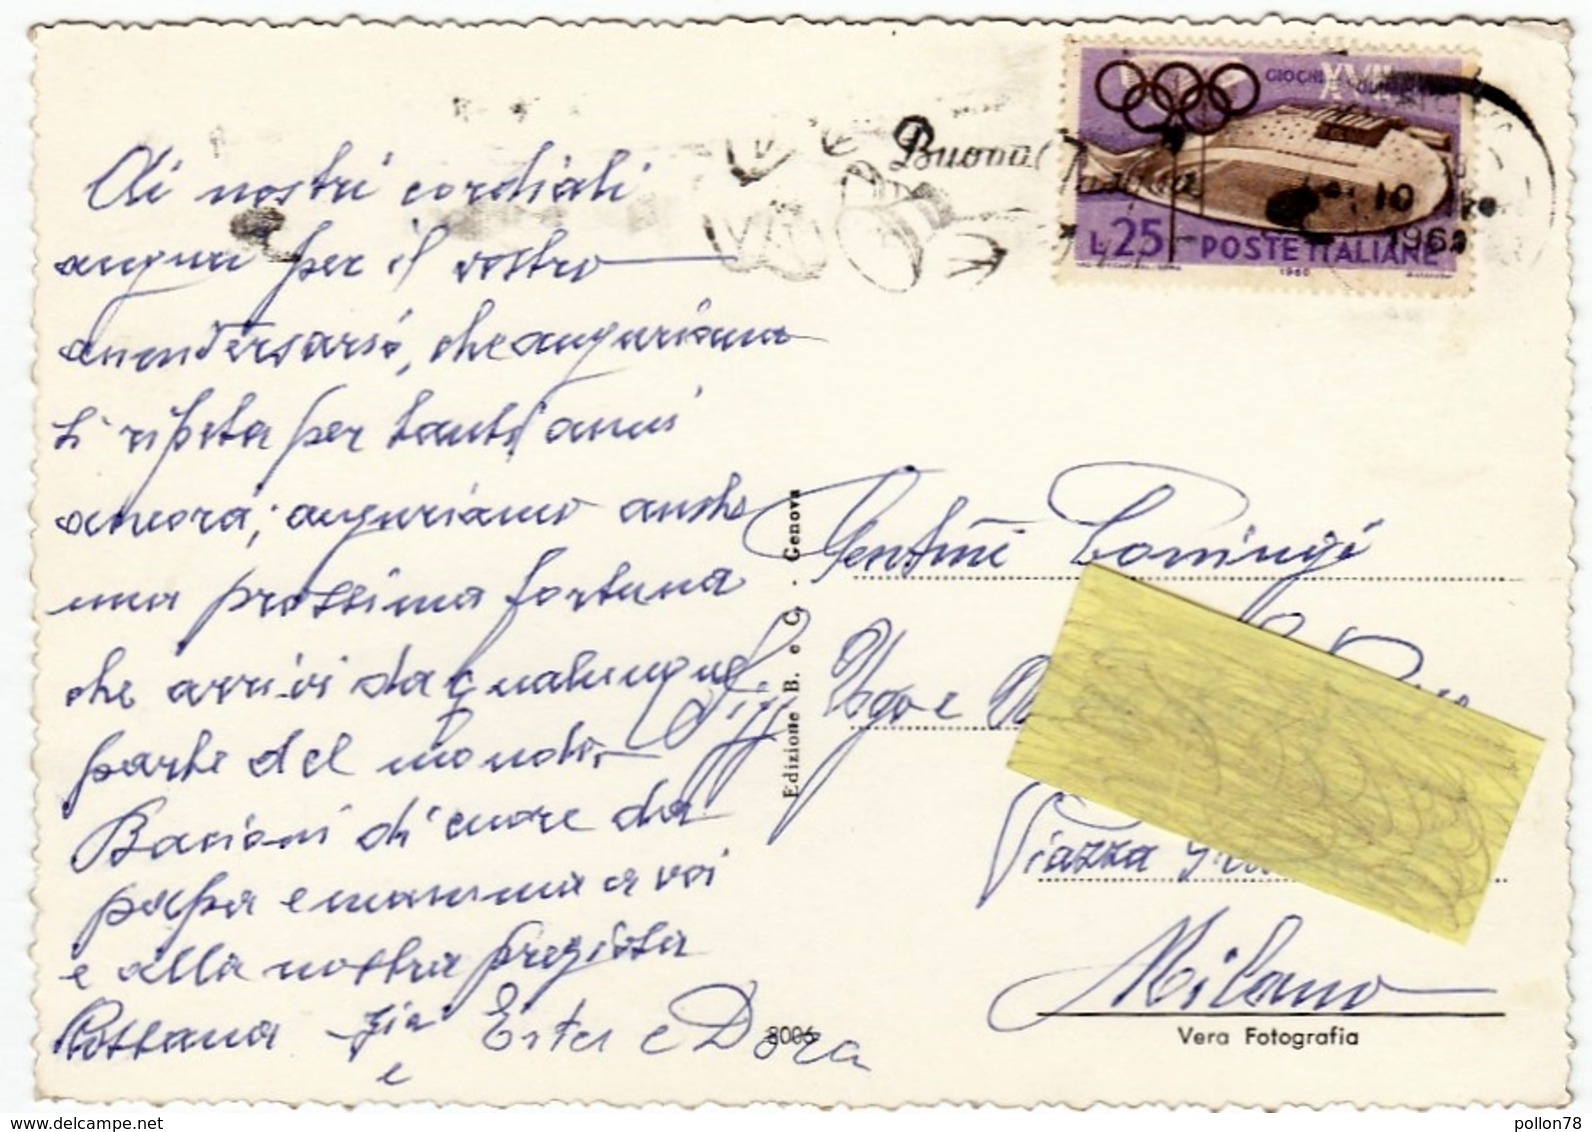 Ai nostri cordiali
auguri per il vostro
anniversario, che auguriamo
si ripeta per tanti anni
ancora; auguriamo anche
una prossima fortuna
che arrivi da qualunque
parte del mondo.
Bacioni di cuore da
papa e mamma a voi
e alla nostra
Rossana Zia Ester e Dora
e
Buona
GIOCHI XVII
L.25 POSTE ITALIANE
1960
10
Edizione B. e C. - Genova
Ugo e
Piazza
Milano
8006
Vera Fotografia
www.delcampe.net
pollon78